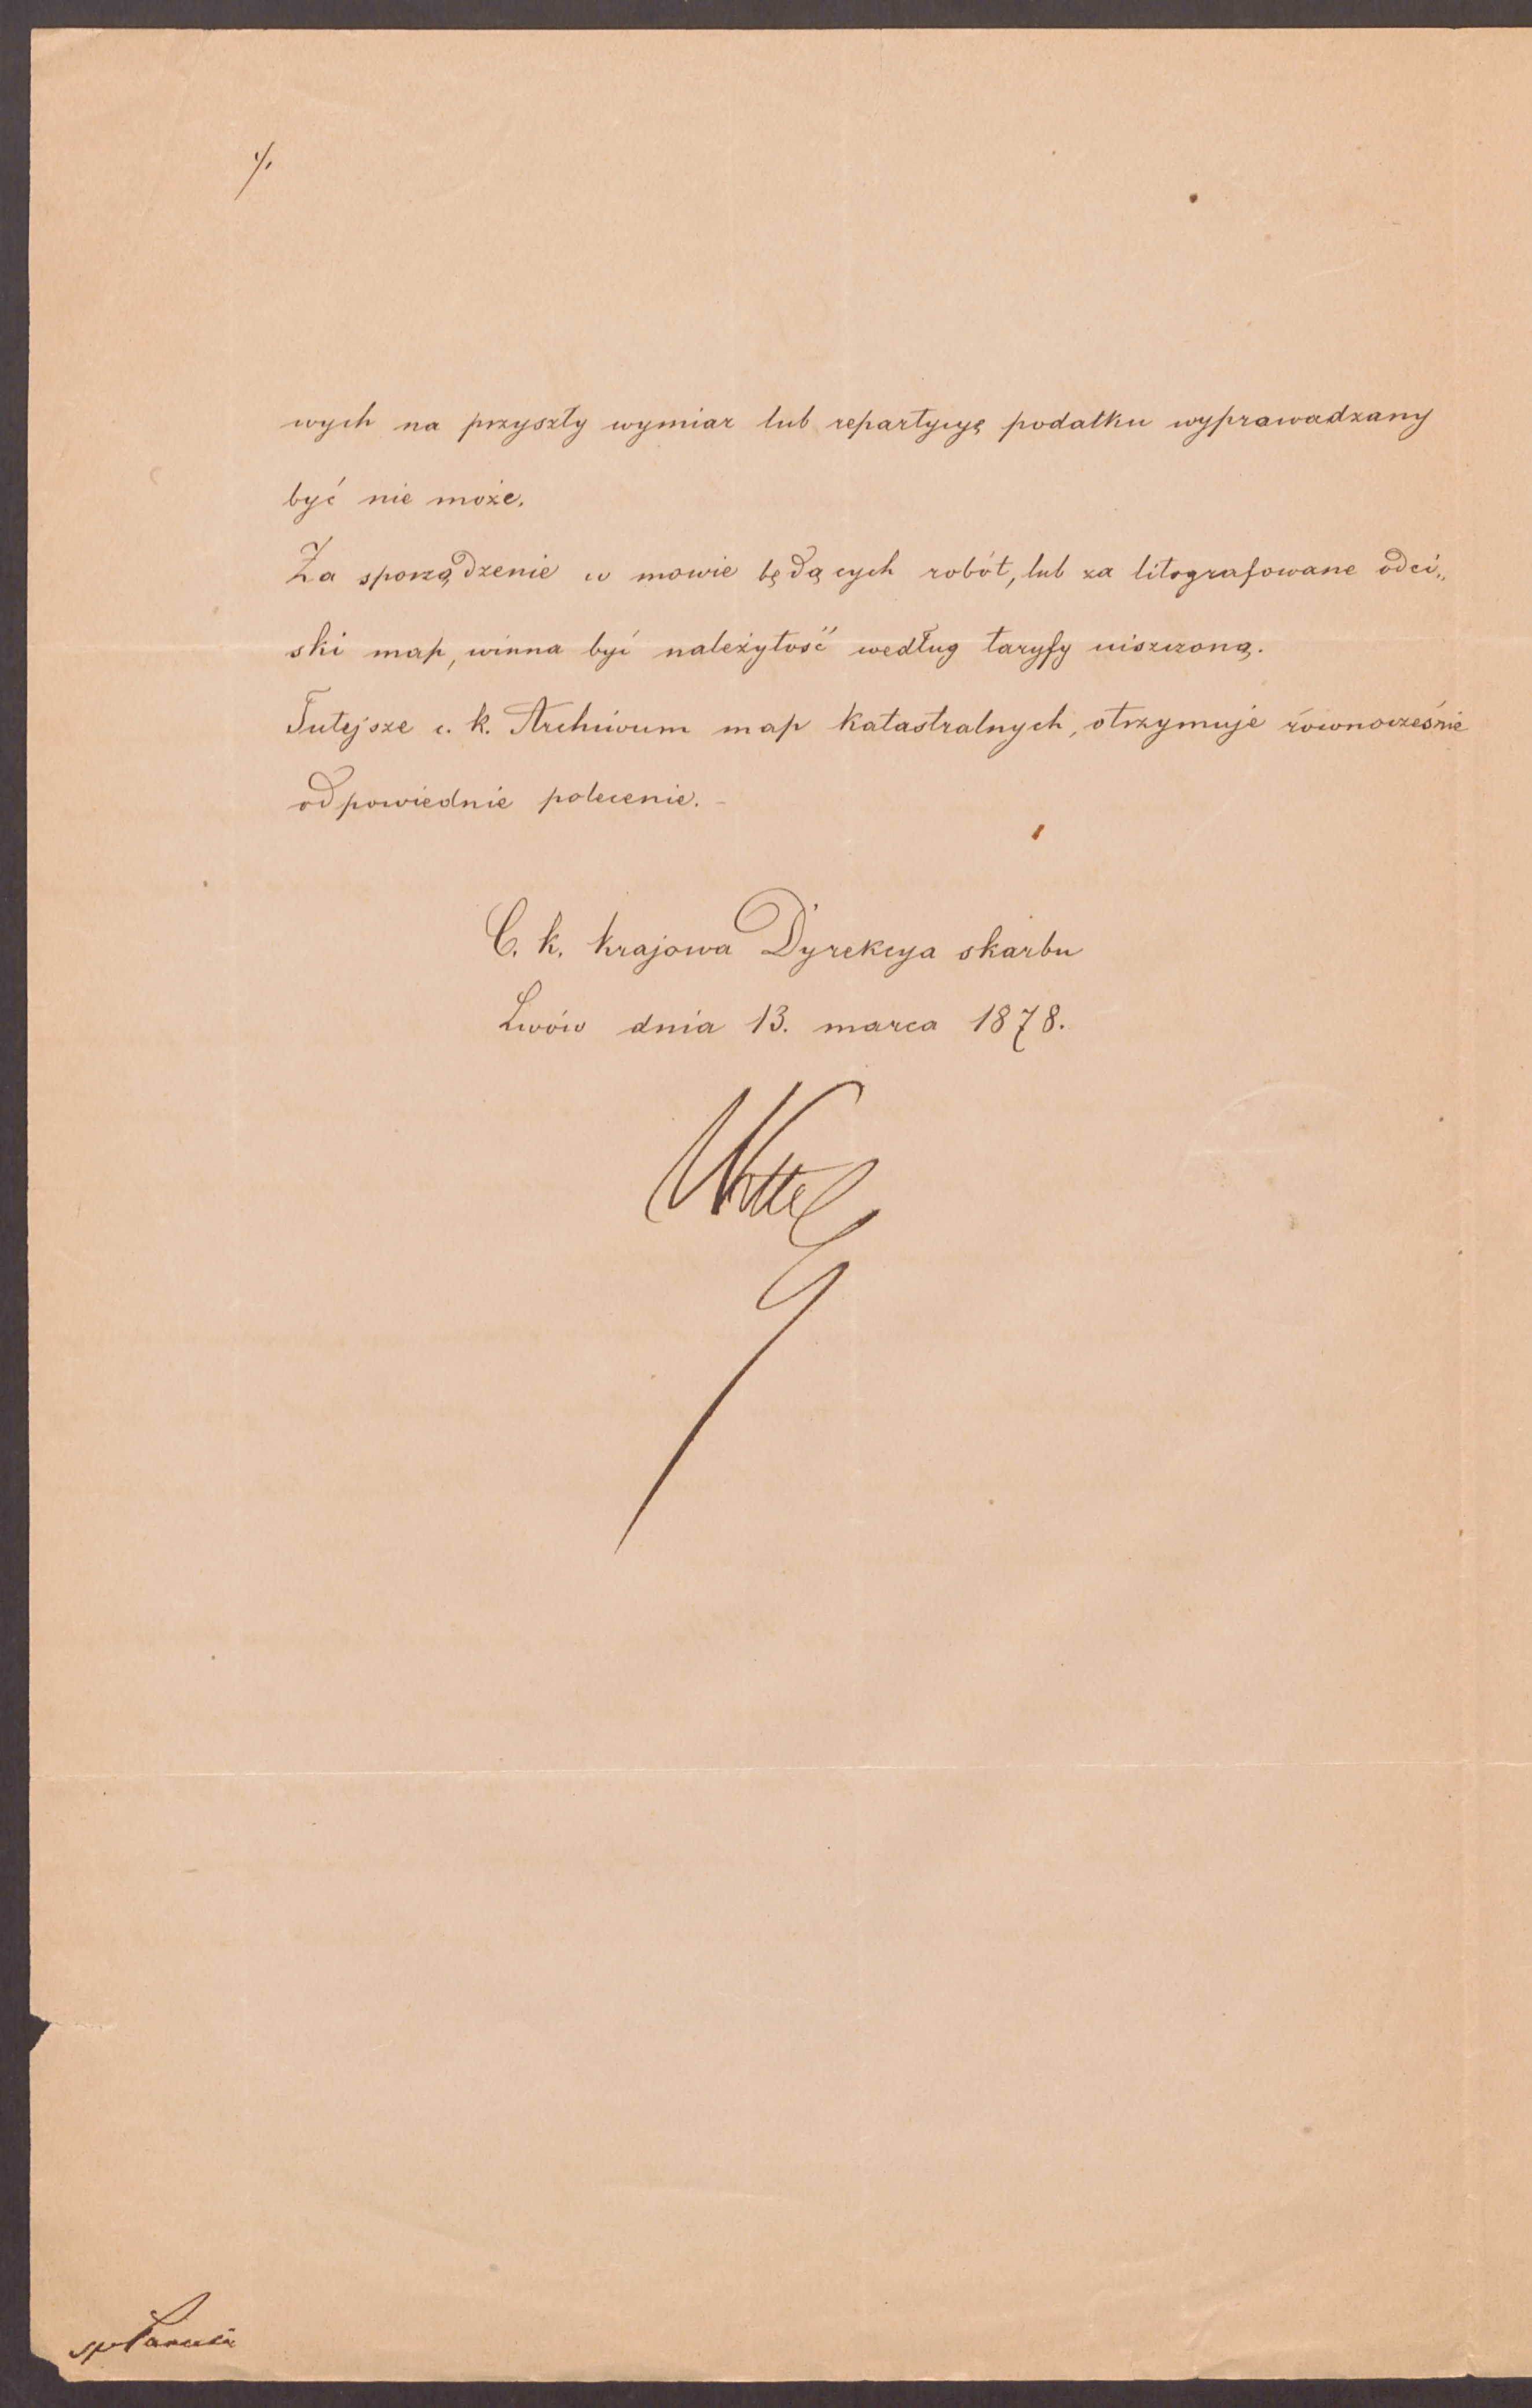 ./.
wych na przyszły wymiar lub repartycyę podatku wyprawadzany
być nie może.
Za sporządzenie w mowie będących robót, lub za litografowane odci„
ski map, winna być należytość według taryfy uiszczoną.
Tutejsze c. k. Archiwum map katastralnych, otrzymuje równocześnie
odpowiednie polecenie. –
C. k. krajowa Dyrekcya skarbu
Lwów dnia 13. marca 1878.